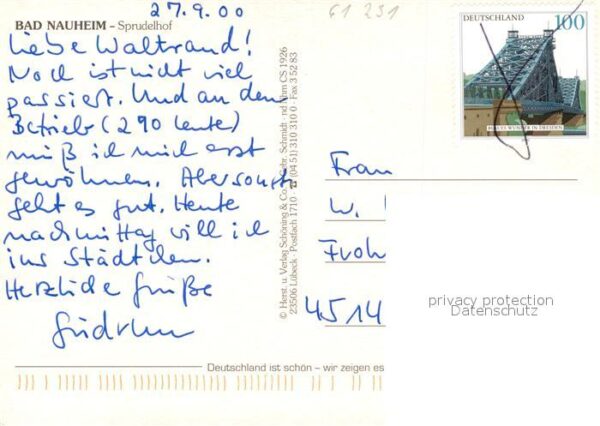 27.9.00
61 231
BAD NAUHEIM – Sprudelhof
Liebe Waltraud!
Noch ist nicht viel
passiert. Und an den
Betrieb (290 Leute)
muß ich mich erst
gewöhnen. Aber sonst
geht es gut. Heute
nachmittag will ich
ins Städtchen.
Herzliche Grüße
Gudrun
© Herst. u. Verlag Schöning & Co. Schmidt
CS 1926
23506 Lübeck · Postfach 1710 · ☎ (04 51) 310 310 · Fax 3 52 83
DEUTSCHLAND 100
BLAUES WUNDER IN DRESDEN
Frau
W.
Froh
4514
privacy protection
Datenschutz
Deutschland ist schön – wir zeigen es